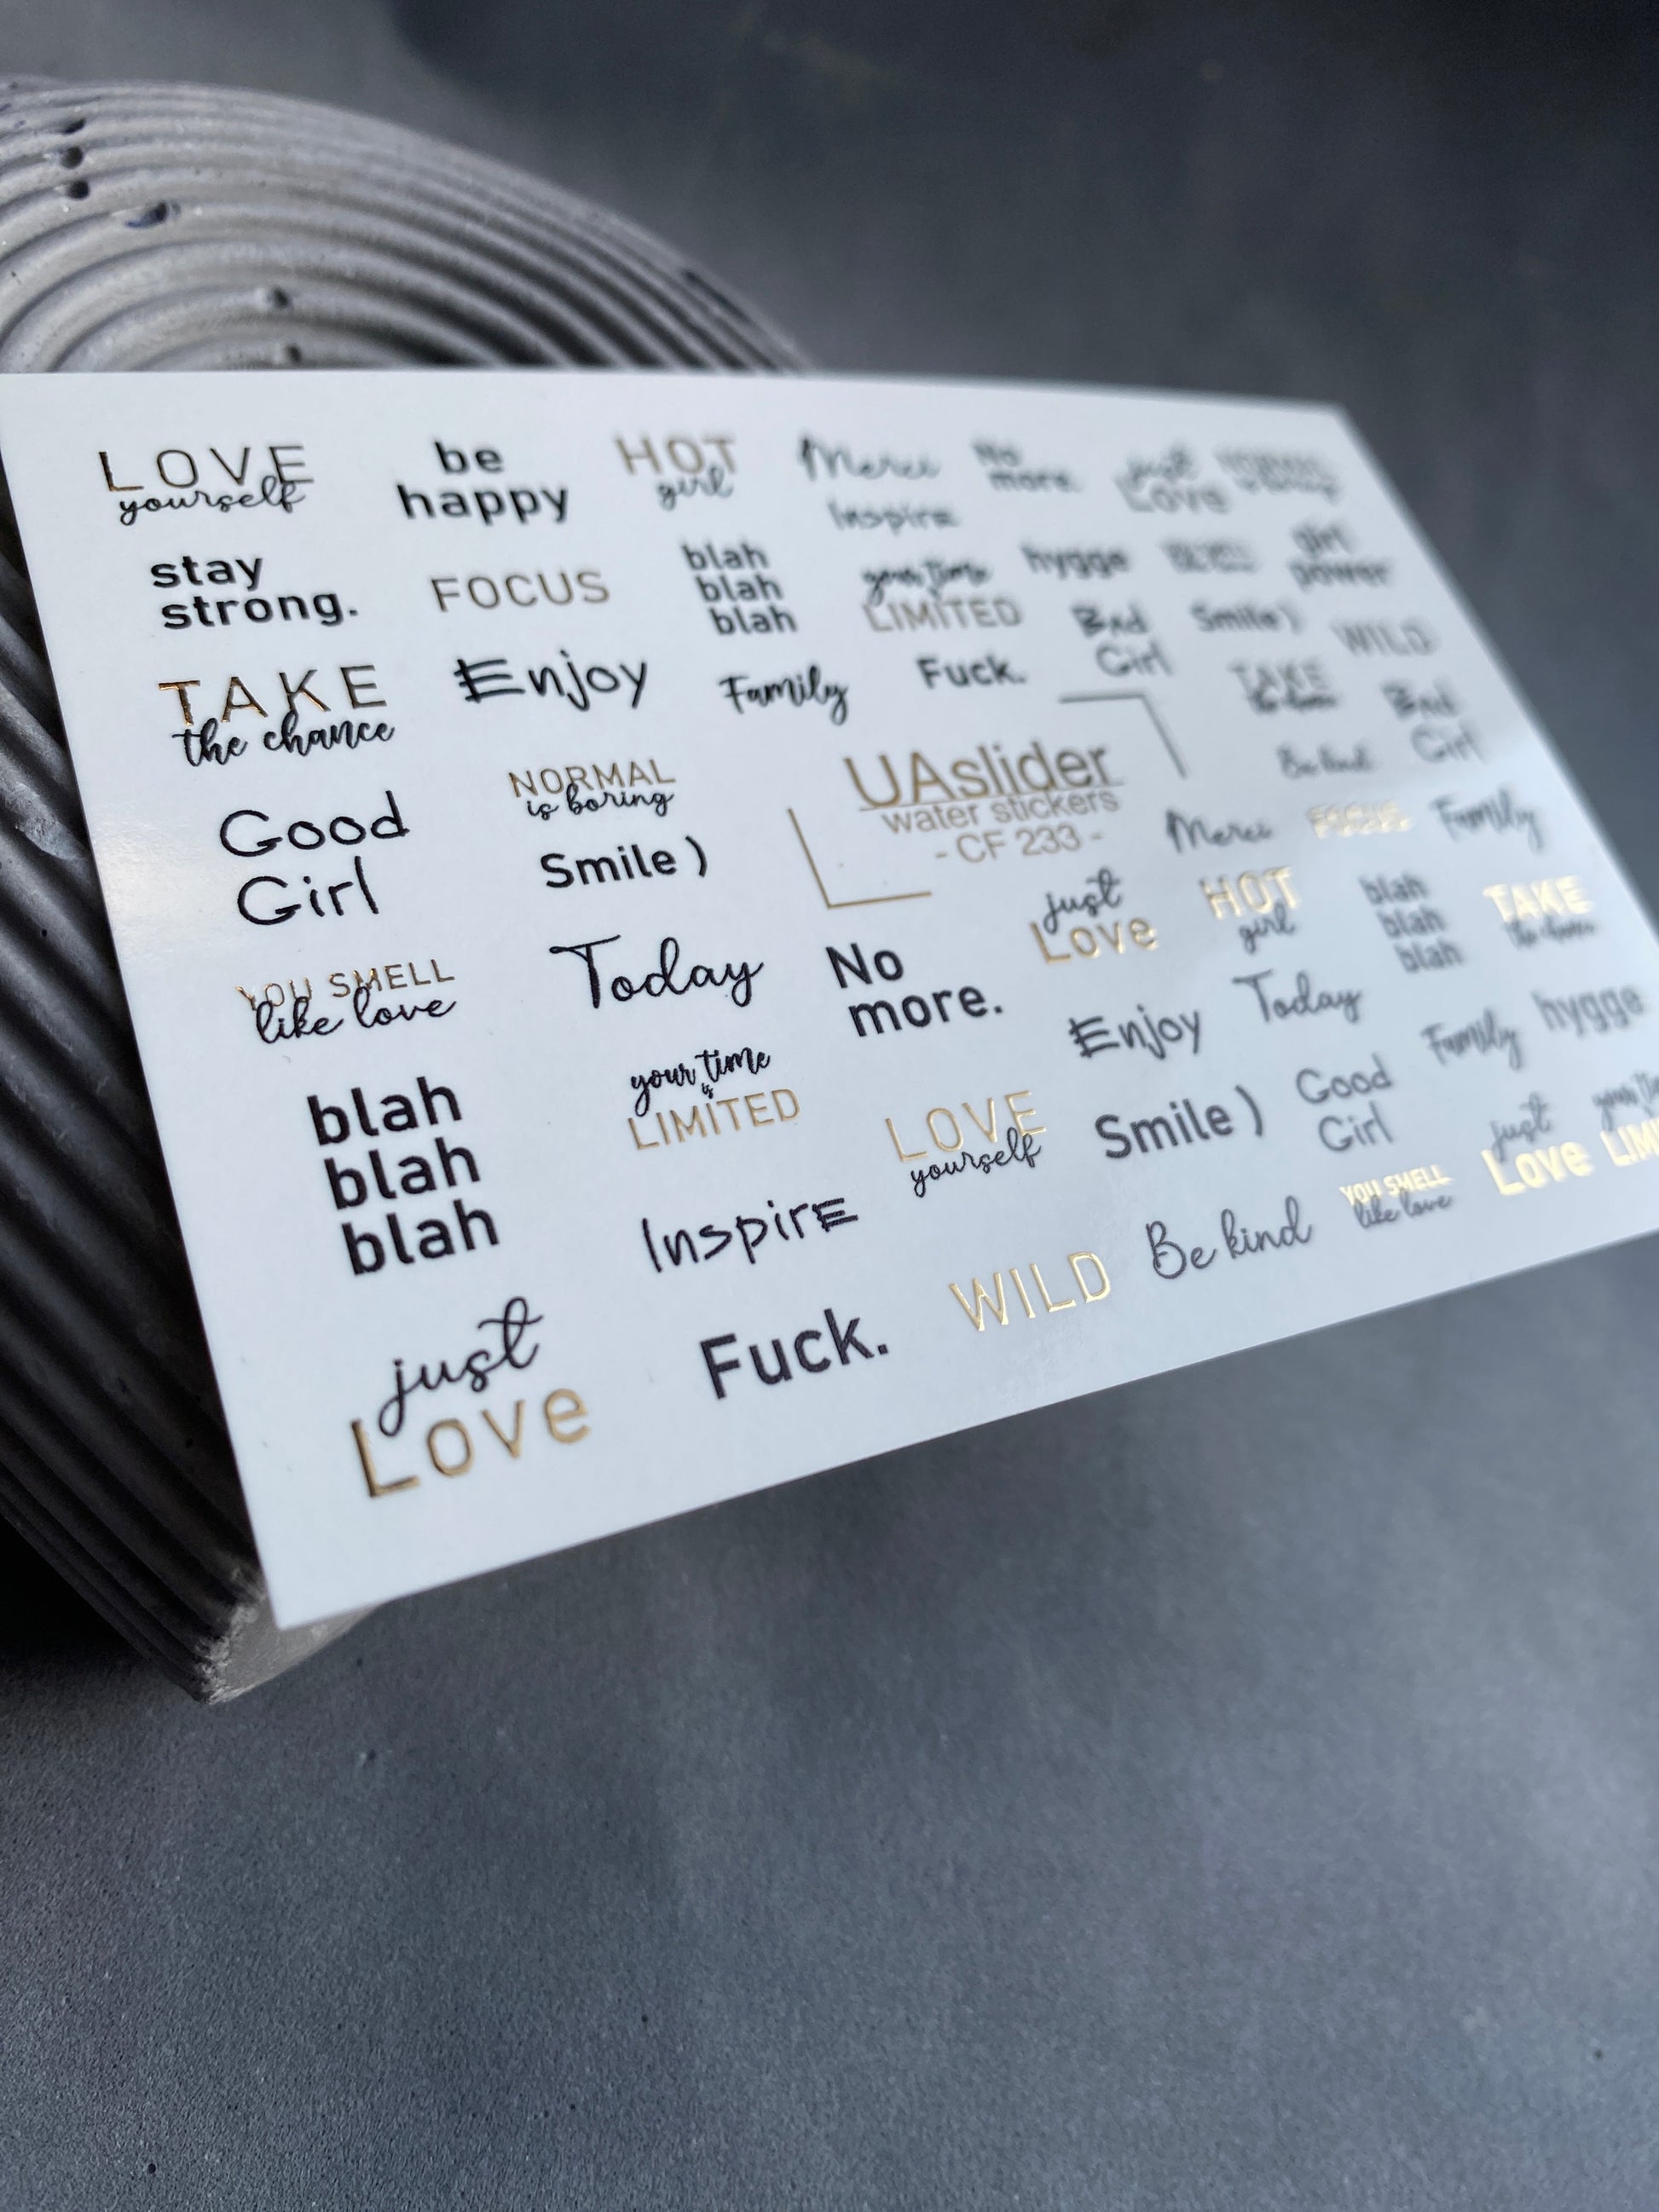 LOVE
yourself
be
happy
HOT
girl
Merci
No
more.
just
Love
NORMAL
is boring
Inspire
stay
strong.
FOCUS
blah
blah
blah
your time
is
LIMITED
hygge
girl
power
TAKE
the chance
Enjoy
Family
Fuck.
Bad
Girl
Smile )
WILD
TAKE
the chance
Bad
Girl
Be kind
Good
Girl
NORMAL
is boring
Smile )
UAslider
water stickers
- CF 233 -
Merci
FOCUS
Family
YOU SMELL
like love
Today
No
more.
just
Love
HOT
girl
blah
blah
blah
TAKE
the chance
blah
blah
blah
your time
is
LIMITED
Enjoy
Today
Family
hygge
LOVE
yourself
Smile )
Good
Girl
just
Love
Inspire
WILD
Be kind
YOU SMELL
like love
just
Love
Fuck.